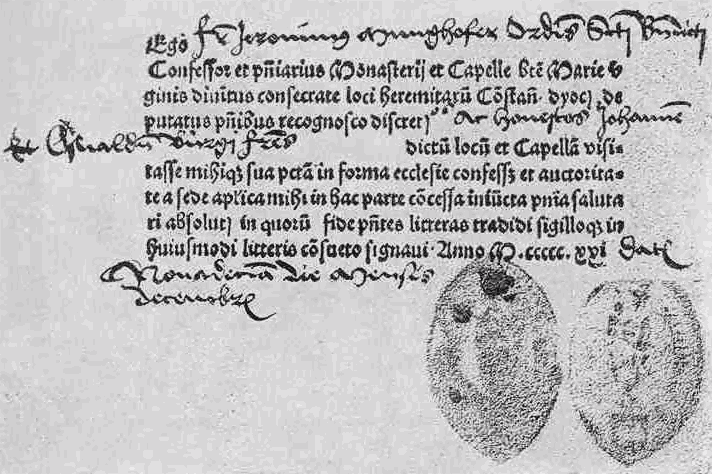 Ego fr̄ Jeronimus Munghofer Ordīs Scti Bn̄dicti
Confessor et pn̄iarius Monasterij et Capelle btē Marie v
ginis diuītus consecrate loci heremitarū Cōstañ. dyoč. de
putatus pn̄ibus recognosco discret ac honestos Johannē
et Oswaldū Burgi fr̄es dictū locū et Capellā visi⸗
tasse mihiq̄ꝫ sua pctā in forma ecclesie confess et auctorita⸗
te a sede ap̄lica mihi in hac parte cōcessa iniūcta pn̄ia saluta
ri absolut in quorū fide pn̄tes litteras tradidi sigilloqꝫ in
huiusmodi litteris cōsueto signaui. Anno M.ccccc.xxi Dat
die Mensis
decembr